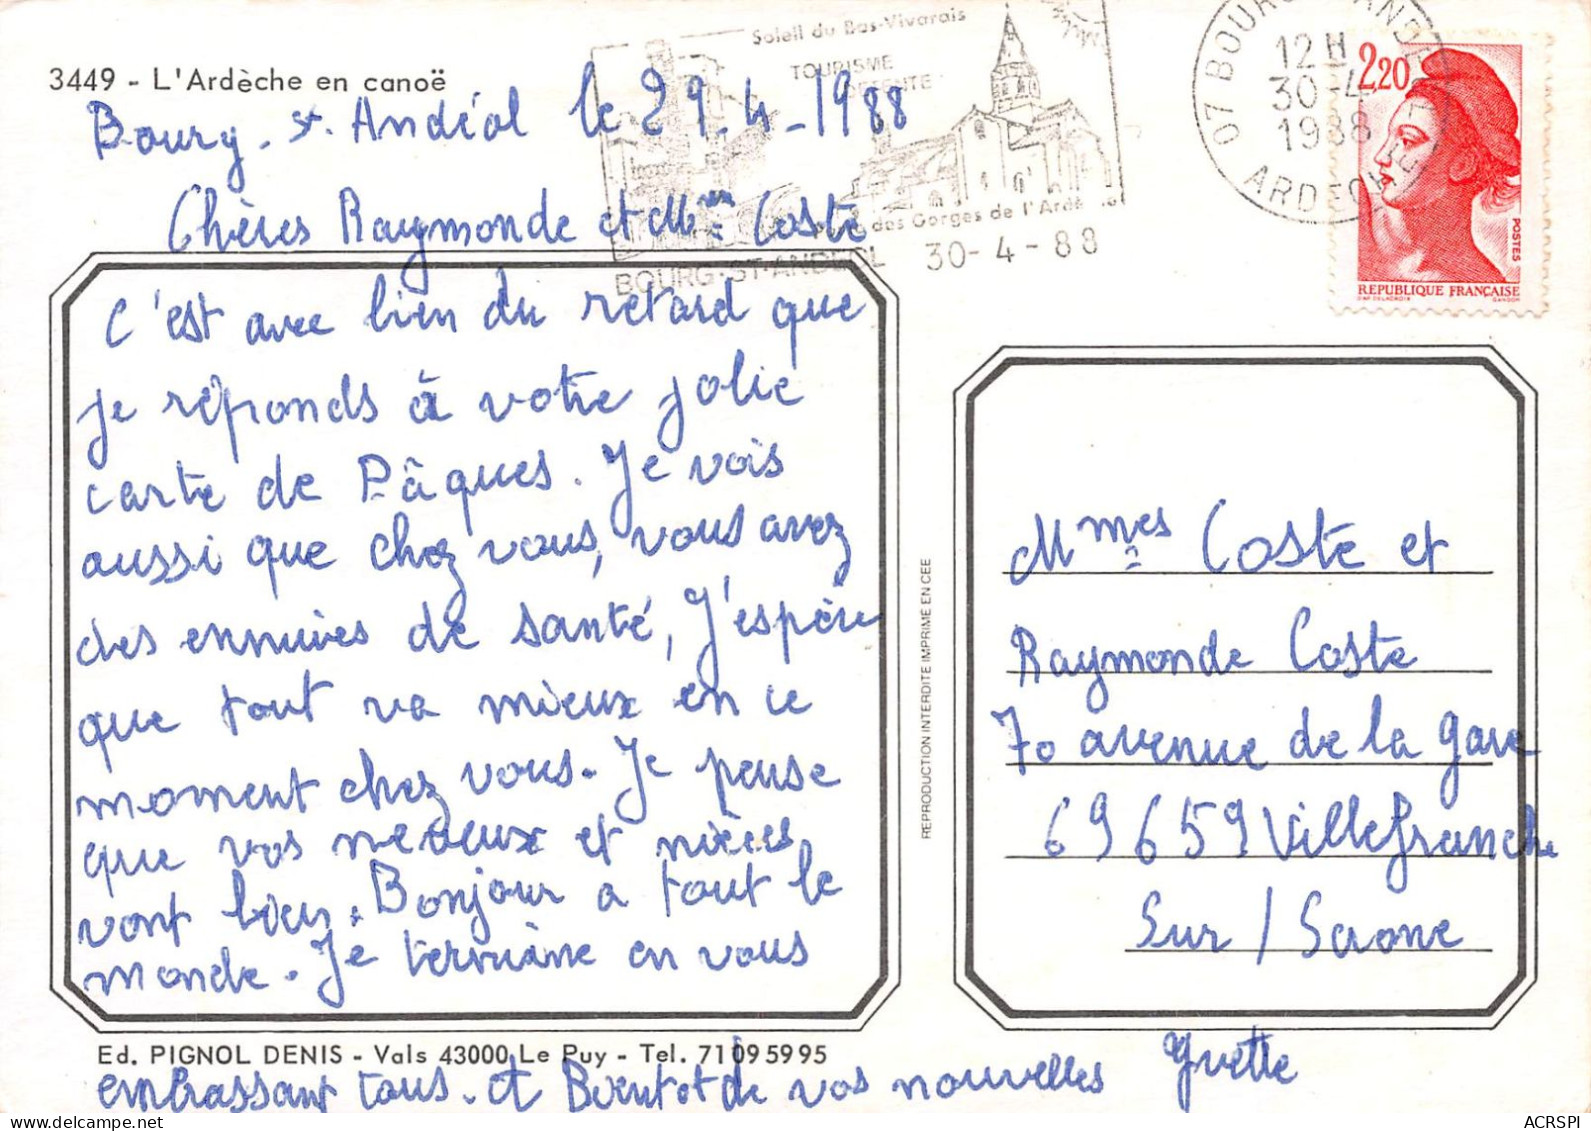 3449 - L'Ardèche en canoë
Soleil du Bas-Vivarais
TOURISME
DETENTE
des Gorges de l'Ardè
BOURG-ST-ANDEOL 30-4-88
07 BOURG ST ANDEOL
12 H
30-4
1988
ARDECHE
2,20
POSTES
REPUBLIQUE FRANÇAISE
D'AP. DELACROIX GANDON
Bourg-St-Andéol le 29-4-1988
Chères Raymonde et Mme Coste
C'est avec bien du retard que
je réponds à votre jolie
carte de Pâques. Je vois
aussi que chez vous, vous avez
des ennuies de santé, J'espère
que tout va mieux en ce
moment chez vous. Je pense
que vos neveux et nièces
vont bien. Bonjour a tout le
monde. Je termine en vous
embrassant tous. et Bientot de vos nouvelles
Yvette
Ed. PIGNOL DENIS - Vals 43000 Le Puy - Tel. 71095995
REPRODUCTION INTERDITE IMPRIME EN CEE
Mmes Coste et
Raymonde Coste
70 avenue de la gare
69659 Villefranche
Sur / Saone
ACRSPI